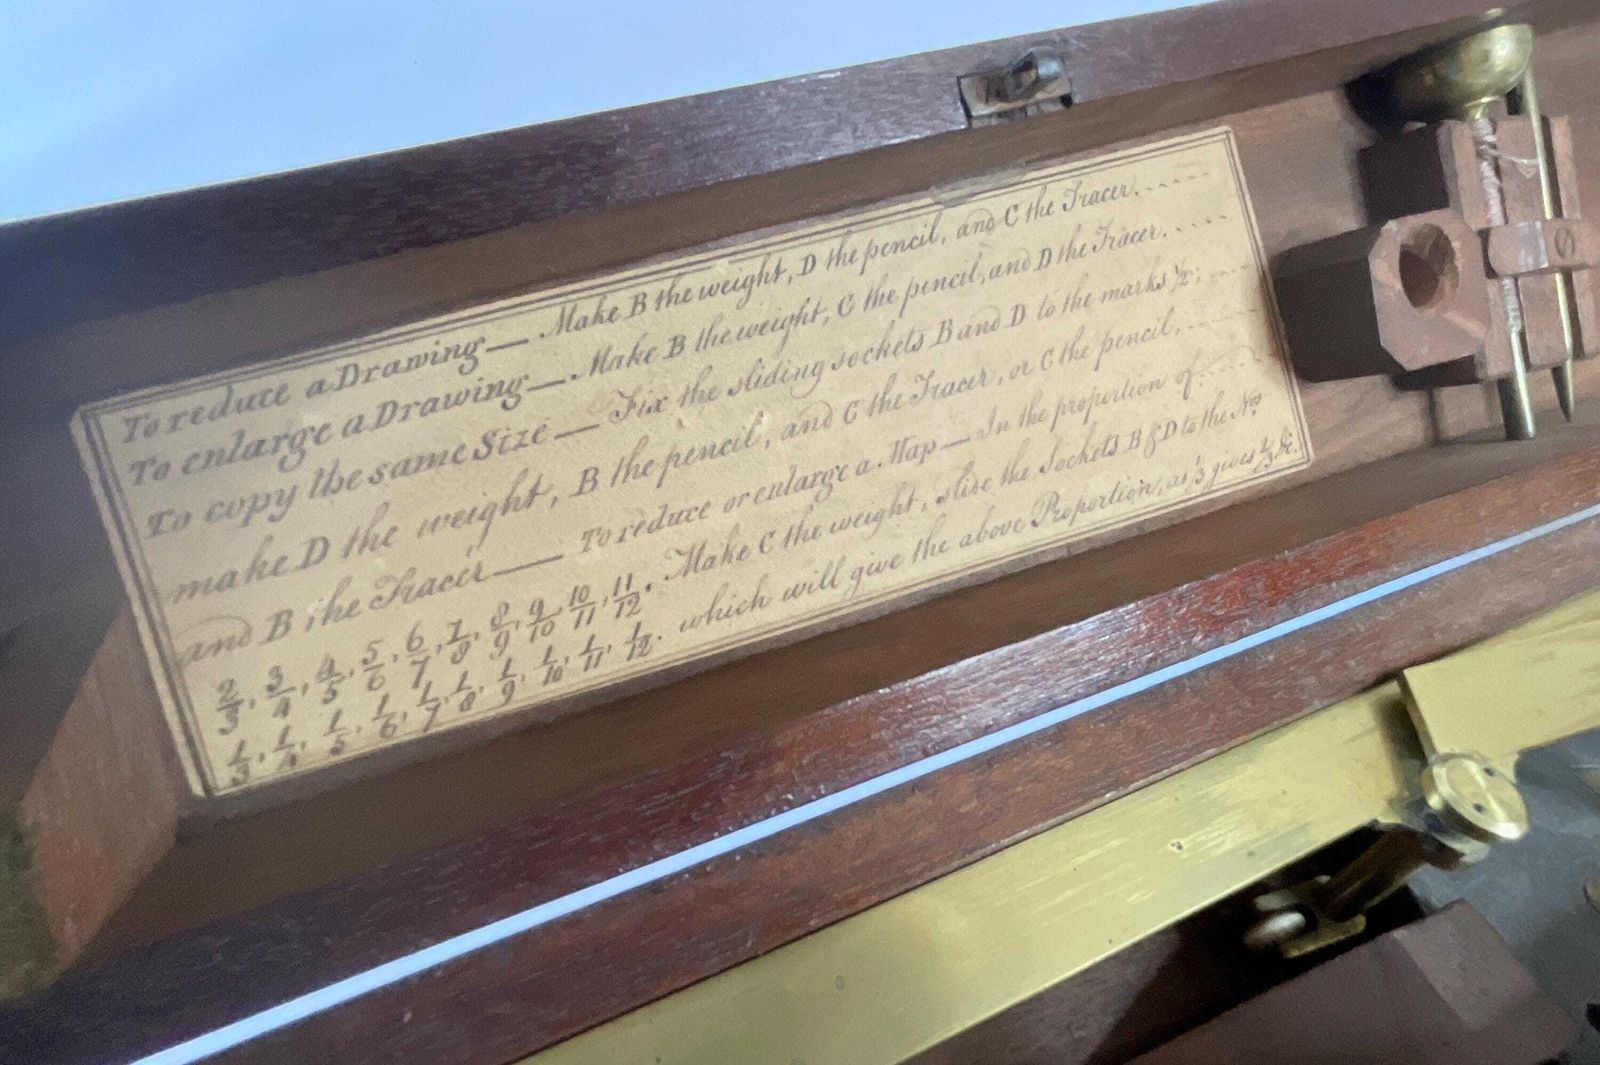 To reduce a Drawing — Make B the weight, D the pencil, and C the Tracer.......
To enlarge a Drawing — Make B the weight, C the pencil, and D the Tracer.....
To copy the same Size — Fix the sliding sockets B and D to the marks ½;....
make D the weight, B the pencil, and C the Tracer, or C the pencil,......
and B the Tracer — To reduce or enlarge a Map — In the proportion of.....
2/3, 3/4, 4/5, 5/6, 6/7, 7/8, 8/9, 9/10, 10/11, 11/12. Make C the weight, slide the Sockets B & D to the Nos
1/3, 1/4, 1/5, 1/6, 1/7, 1/8, 1/9, 1/10, 1/11, 1/12. which will give the above Proportion, as 1/3 gives 2/3 &c.